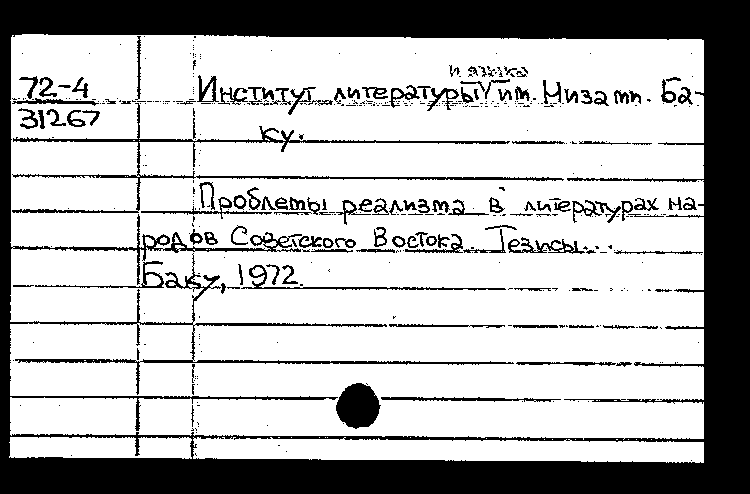 72-4
31267
и языка
Институт литературы V им. Низами. Ба-
ку.
Проблемы реализма в литературах на-
родов Советского Востока. Тезисы...
Баку, 1972.